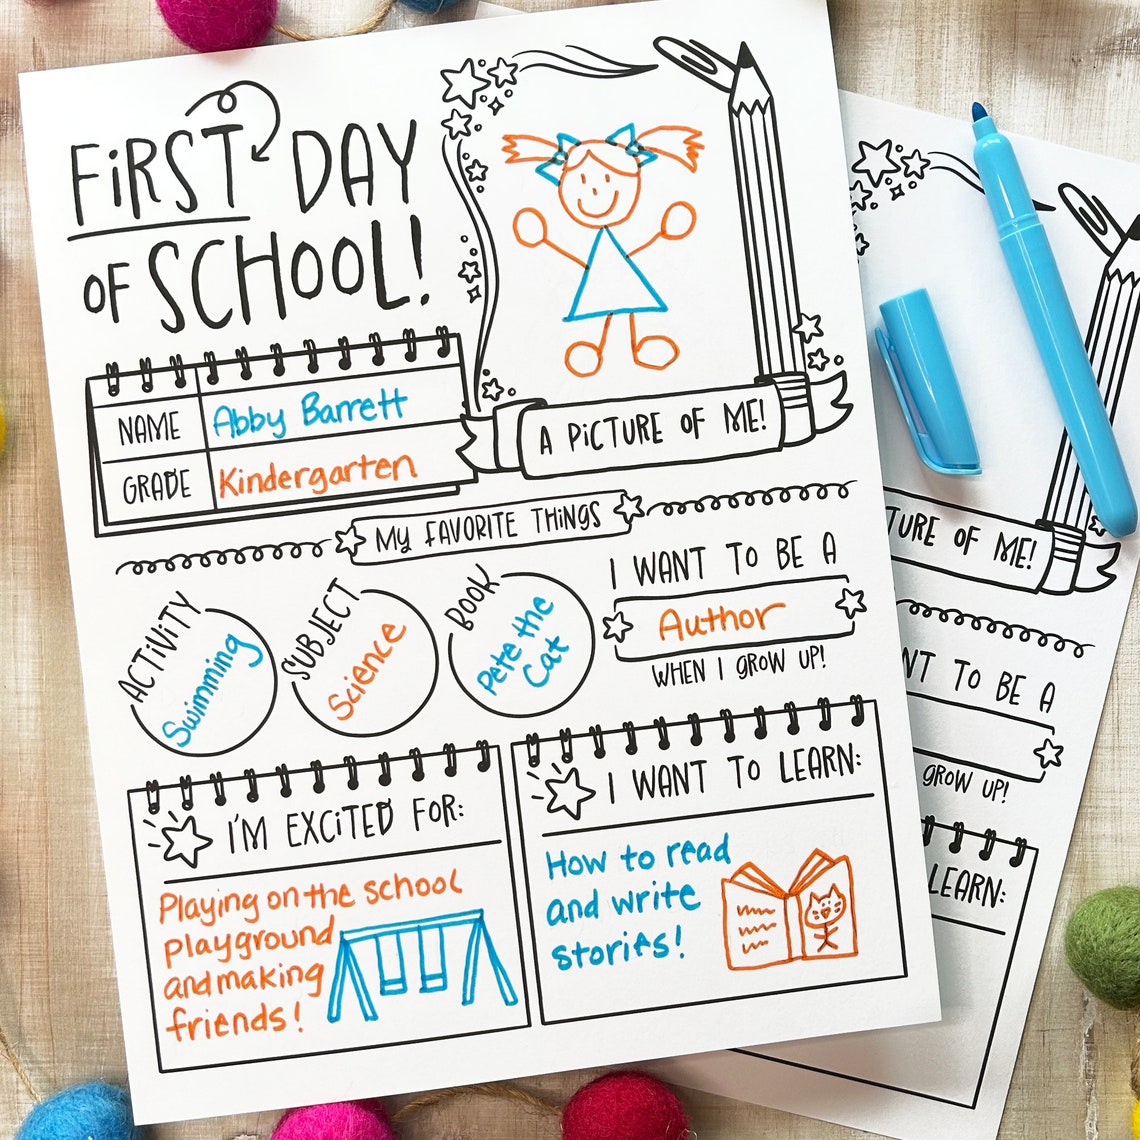 FIRST DAY
OF SCHOOL!
NAME Abby Barrett
GRADE Kindergarten
A PICTURE OF ME!
MY FAVORITE THINGS
ACTIVITY
Swimming
SUBJECT
Science
BOOK
Pete the
Cat
I WANT TO BE A
Author
WHEN I GROW UP!
I'M EXCITED FOR:
Playing on the school
playground
and making
friends!
I WANT TO LEARN:
How to read
and write
stories!
TURE OF ME!
NT TO BE A
GROW UP!
LEARN: